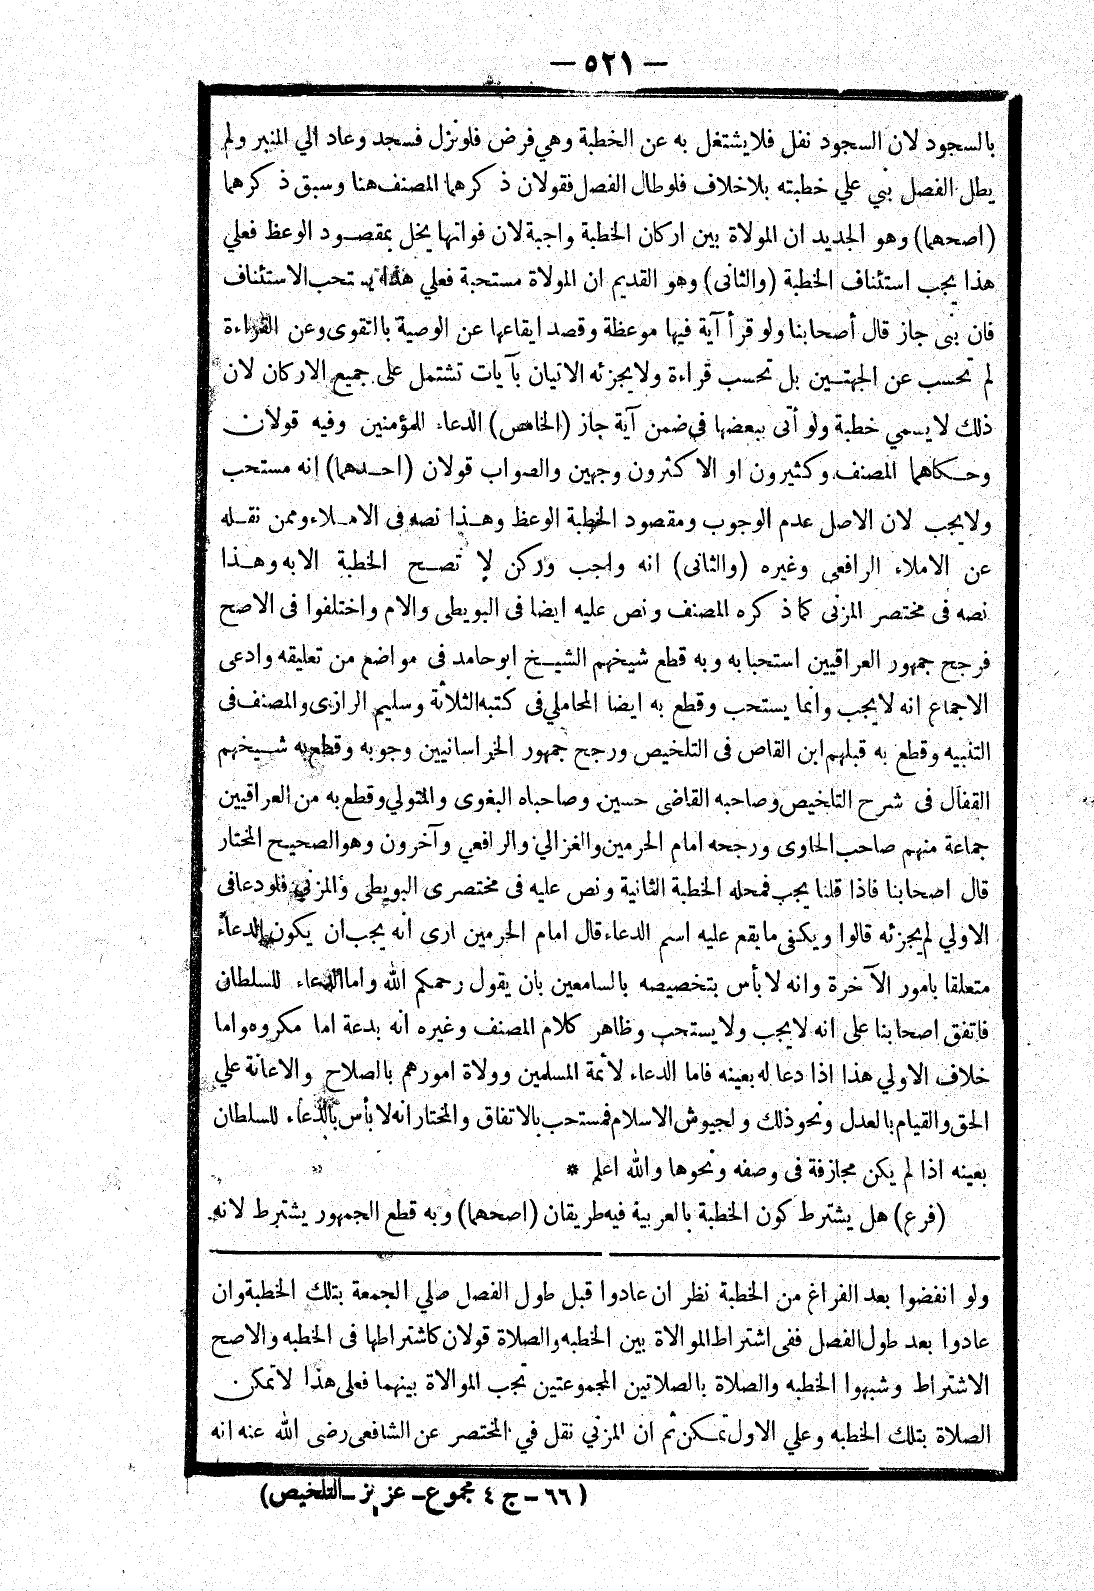 — ٥٢١ —
بالسجود لان السجود نفل فلا يشتغل به عن الخطبة وهي فرض فلو نزل فسجد وعاد الي المنبر ولم
يطل الفصل بني علي خطبته بلا خلاف فلو طال الفصل فقولان ذكرهما المصنف هنا وسبق ذكرهما
(اصحهما) وهو الجديد ان المولاة بين اركان الخطبة واجبة لان فواتها يخل بمقصود الوعظ فعلي
هذا يجب استئناف الخطبة (والثانى) وهو القديم ان المولاة مستحبة فعلي هذا يستحب الاستئناف
فان بنى جاز قال أصحابنا ولو قرأ آية فيها موعظة وقصد ايقاعها عن الوصية بالتقوى وعن القراءة
لم تحسب عن الجهتين بل تحسب قراءة ولا يجزئه الاتيان بآيات تشتمل على جميع الاركان لان
ذلك لا يسمي خطبة ولو أتى ببعضها في ضمن آية جاز (الخامس) الدعاء للمؤمنين وفيه قولان
وحكاهما المصنف وكثيرون او الاكثرون وجهين والصواب قولان (احدهما) انه مستحب
ولا يجب لان الاصل عدم الوجوب ومقصود الخطبة الوعظ وهذا نصه فى الاملاء وممن نقله
عن الاملاء الرافعى وغيره (والثانى) انه واجب وركن لا تصح الخطبة الا به وهذا
نصه فى مختصر المزنى كما ذكره المصنف ونص عليه ايضا فى البويطى والام واختلفوا فى الاصح
فرجح جمهور العراقيين استحبابه وبه قطع شيخهم الشيخ ابو حامد فى مواضع من تعليقه وادعى
الاجماع انه لا يجب وانما يستحب وقطع به ايضا المحاملي فى كتبه الثلاثة وسليم الرازى والمصنف فى
التنبيه وقطع به قبلهم ابن القاص فى التلخيص ورجح جمهور الخراسانيين وجوبه وقطع به شيخهم
القفال فى شرح التلخيص وصاحبه القاضى حسين وصاحباه البغوى والمتولي وقطع به من العراقيين
جماعة منهم صاحب الحاوى ورجحه امام الحرمين والغزالي والرافعي وآخرون وهو الصحيح المختار
قال اصحابنا فاذا قلنا يجب فمحله الخطبة الثانية ونص عليه فى مختصرى البويطى والمزني فلو دعا فى
الاولي لم يجزئه قالوا ويكفى ما يقع عليه اسم الدعاء قال امام الحرمين ارى انه يجب ان يكون الدعاء
متعلقا بامور الآخرة وانه لا بأس بتخصيصه بالسامعين بان يقول رحمكم الله واما الدعاء للسلطان
فاتفق اصحابنا على انه لا يجب ولا يستحب وظاهر كلام المصنف وغيره انه بدعة اما مكروه واما
خلاف الاولي هذا اذا دعا له بعينه فاما الدعاء لأئمة المسلمين وولاة امورهم بالصلاح والاعانة علي
الحق والقيام بالعدل ونحو ذلك ولجيوش الاسلام فمستحب بالاتفاق والمختار انه لا بأس بالدعاء للسلطان
بعينه اذا لم يكن مجازفة فى وصفه ونحوها والله اعلم *
(فرع) هل يشترط كون الخطبة بالعربية فيه طريقان (اصحهما) وبه قطع الجمهور يشترط لانه
ولو انفضوا بعد الفراغ من الخطبة نظر ان عادوا قبل طول الفصل صلي الجمعة بتلك الخطبة وان
عادوا بعد طول الفصل ففى اشتراط الموالاة بين الخطبه والصلاة قولان كاشتراطها فى الخطبه والاصح
الاشتراط وشبهوا الخطبه والصلاة بالصلاتين المجموعتين تجب الموالاة بينهما فعلى هذا لا تمكن
الصلاة بتلك الخطبه وعلي الاول تمكن ثم ان المزني نقل في المختصر عن الشافعى رضى الله عنه انه
(٦٦ - ج ٤ مجموع - عزيز - التلخيص)